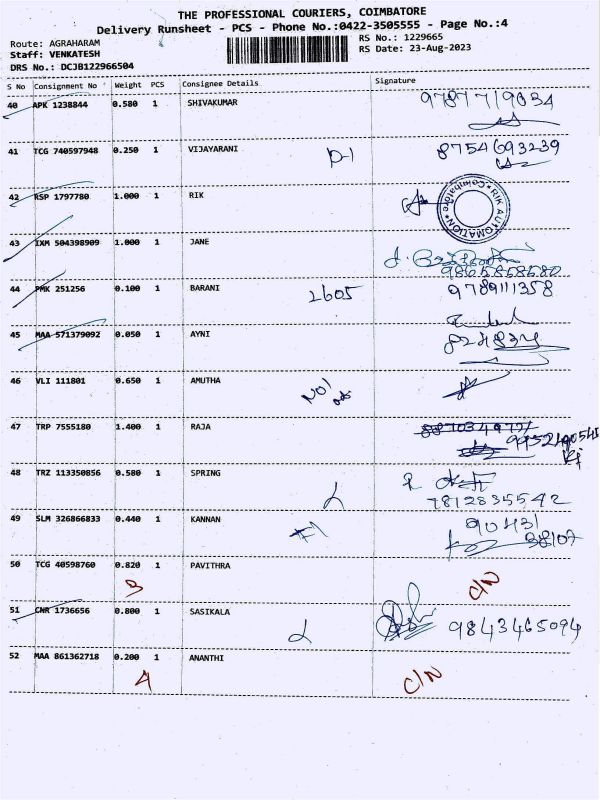 THE PROFESSIONAL COURIERS, COIMBATORE
Delivery Runsheet - PCS - Phone No.:0422-3505555 - Page No.:4
Route: AGRAHARAM RS No.: 1229665
Staff: VENKATESH RS Date: 23-Aug-2023
DRS No.: DCJB122966504
S No Consignment No Weight PCS Consignee Details Signature
40 APK 1238844 0.580 1 SHIVAKUMAR 9787719834
41 TCG 740597948 0.250 1 VIJAYARANI D-1 8754693239
42 RSP 1797780 1.000 1 RIK RIK AUTOMATION * Coimbatore *
43 IXM 504398909 1.000 1 JANE
9865858580
44 PMK 251256 0.100 1 BARANI 2605 9789111358
45 MAA 571379092 0.050 1 AYNI
46 VLI 111801 0.650 1 AMUTHA NO!
47 TRP 7555180 1.400 1 RAJA
48 TRZ 113350856 0.580 1 SPRING
7812835542
49 SLM 326866833 0.440 1 KANNAN 90431
38107
50 TCG 40598760 0.820 1 PAVITHRA C/N
3
51 CNR 1736656 0.800 1 SASIKALA 9843465094
52 MAA 861362718 0.200 1 ANANTHI C/N
4